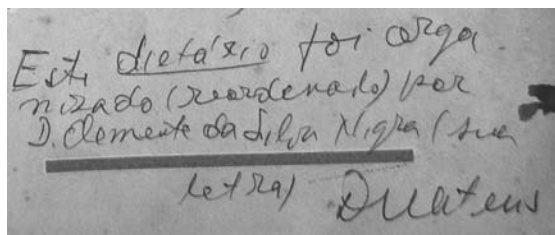 Este dietáxio foi orga
nizado (reordenado) por
D. Clemente da Silva Nigra (sua
letra)